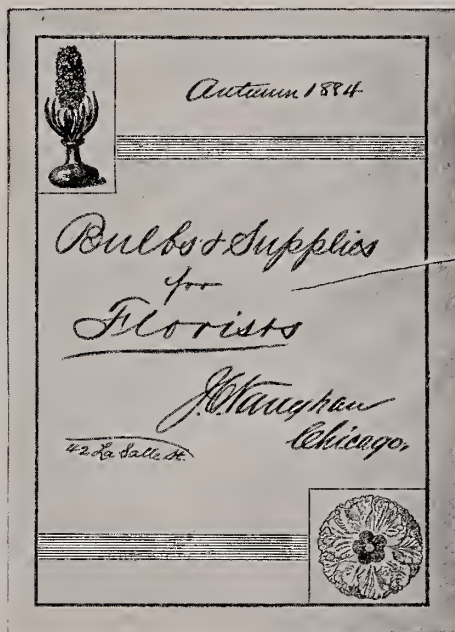 Autumn 1884
Bulbs & Supplies
for
Florists
J.C. Vaughan
Chicago,
42 La Salle St.